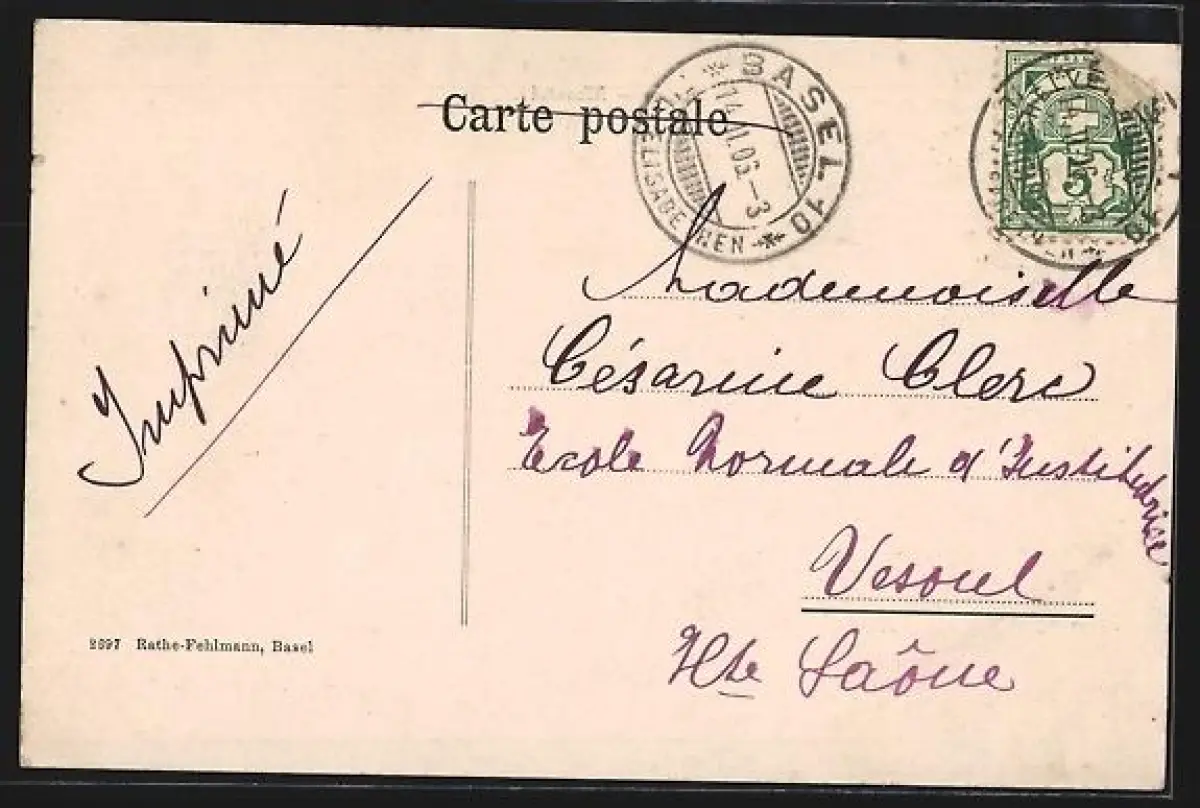 Carte postale
BASEL 10
14. 06.-3
ELISABETHEN
HELVE
5
Imprimé
Mademoiselle
Césarine Clerc
Ecole Normale d'Institutrice
Vesoul
Hte Saône
2697 Rathe-Fehlmann, Basel